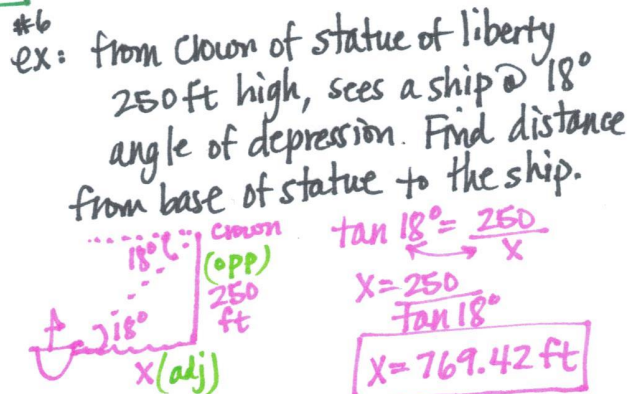 #6
ex: from Clown of statue of liberty
250ft high, sees a ship @ 18°
angle of depression. Find distance
from base of statue to the ship.
crown
18°
(opp)
250
ft
18°
x(adj)
tan 18° = 250
x
x = 250
Tan 18°
x = 769.42 ft